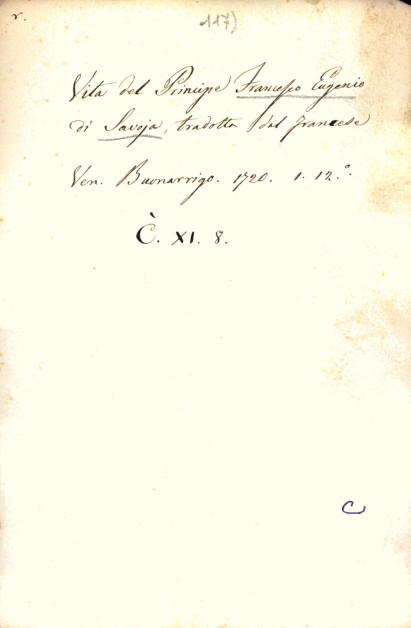 117)
v.
Vita del Principe Francesco Eugenio
di Savoja, tradotta dal francese
Ven. Buonarrigo. 1720. 1. 12.º
È. XI. 8.
C